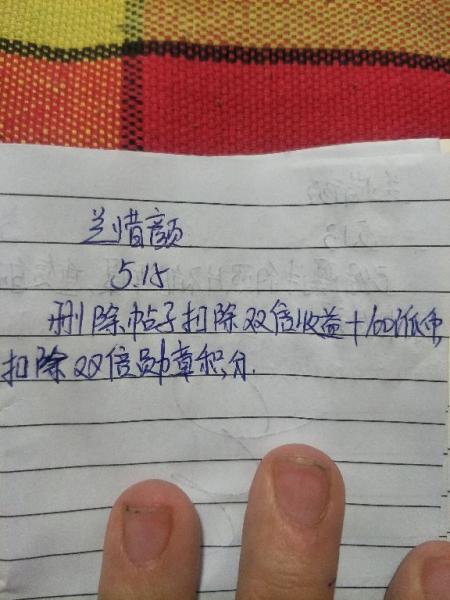 兰惜颜
5.15
删除帖子扣除双倍收益+100
扣除双倍勋章积分.